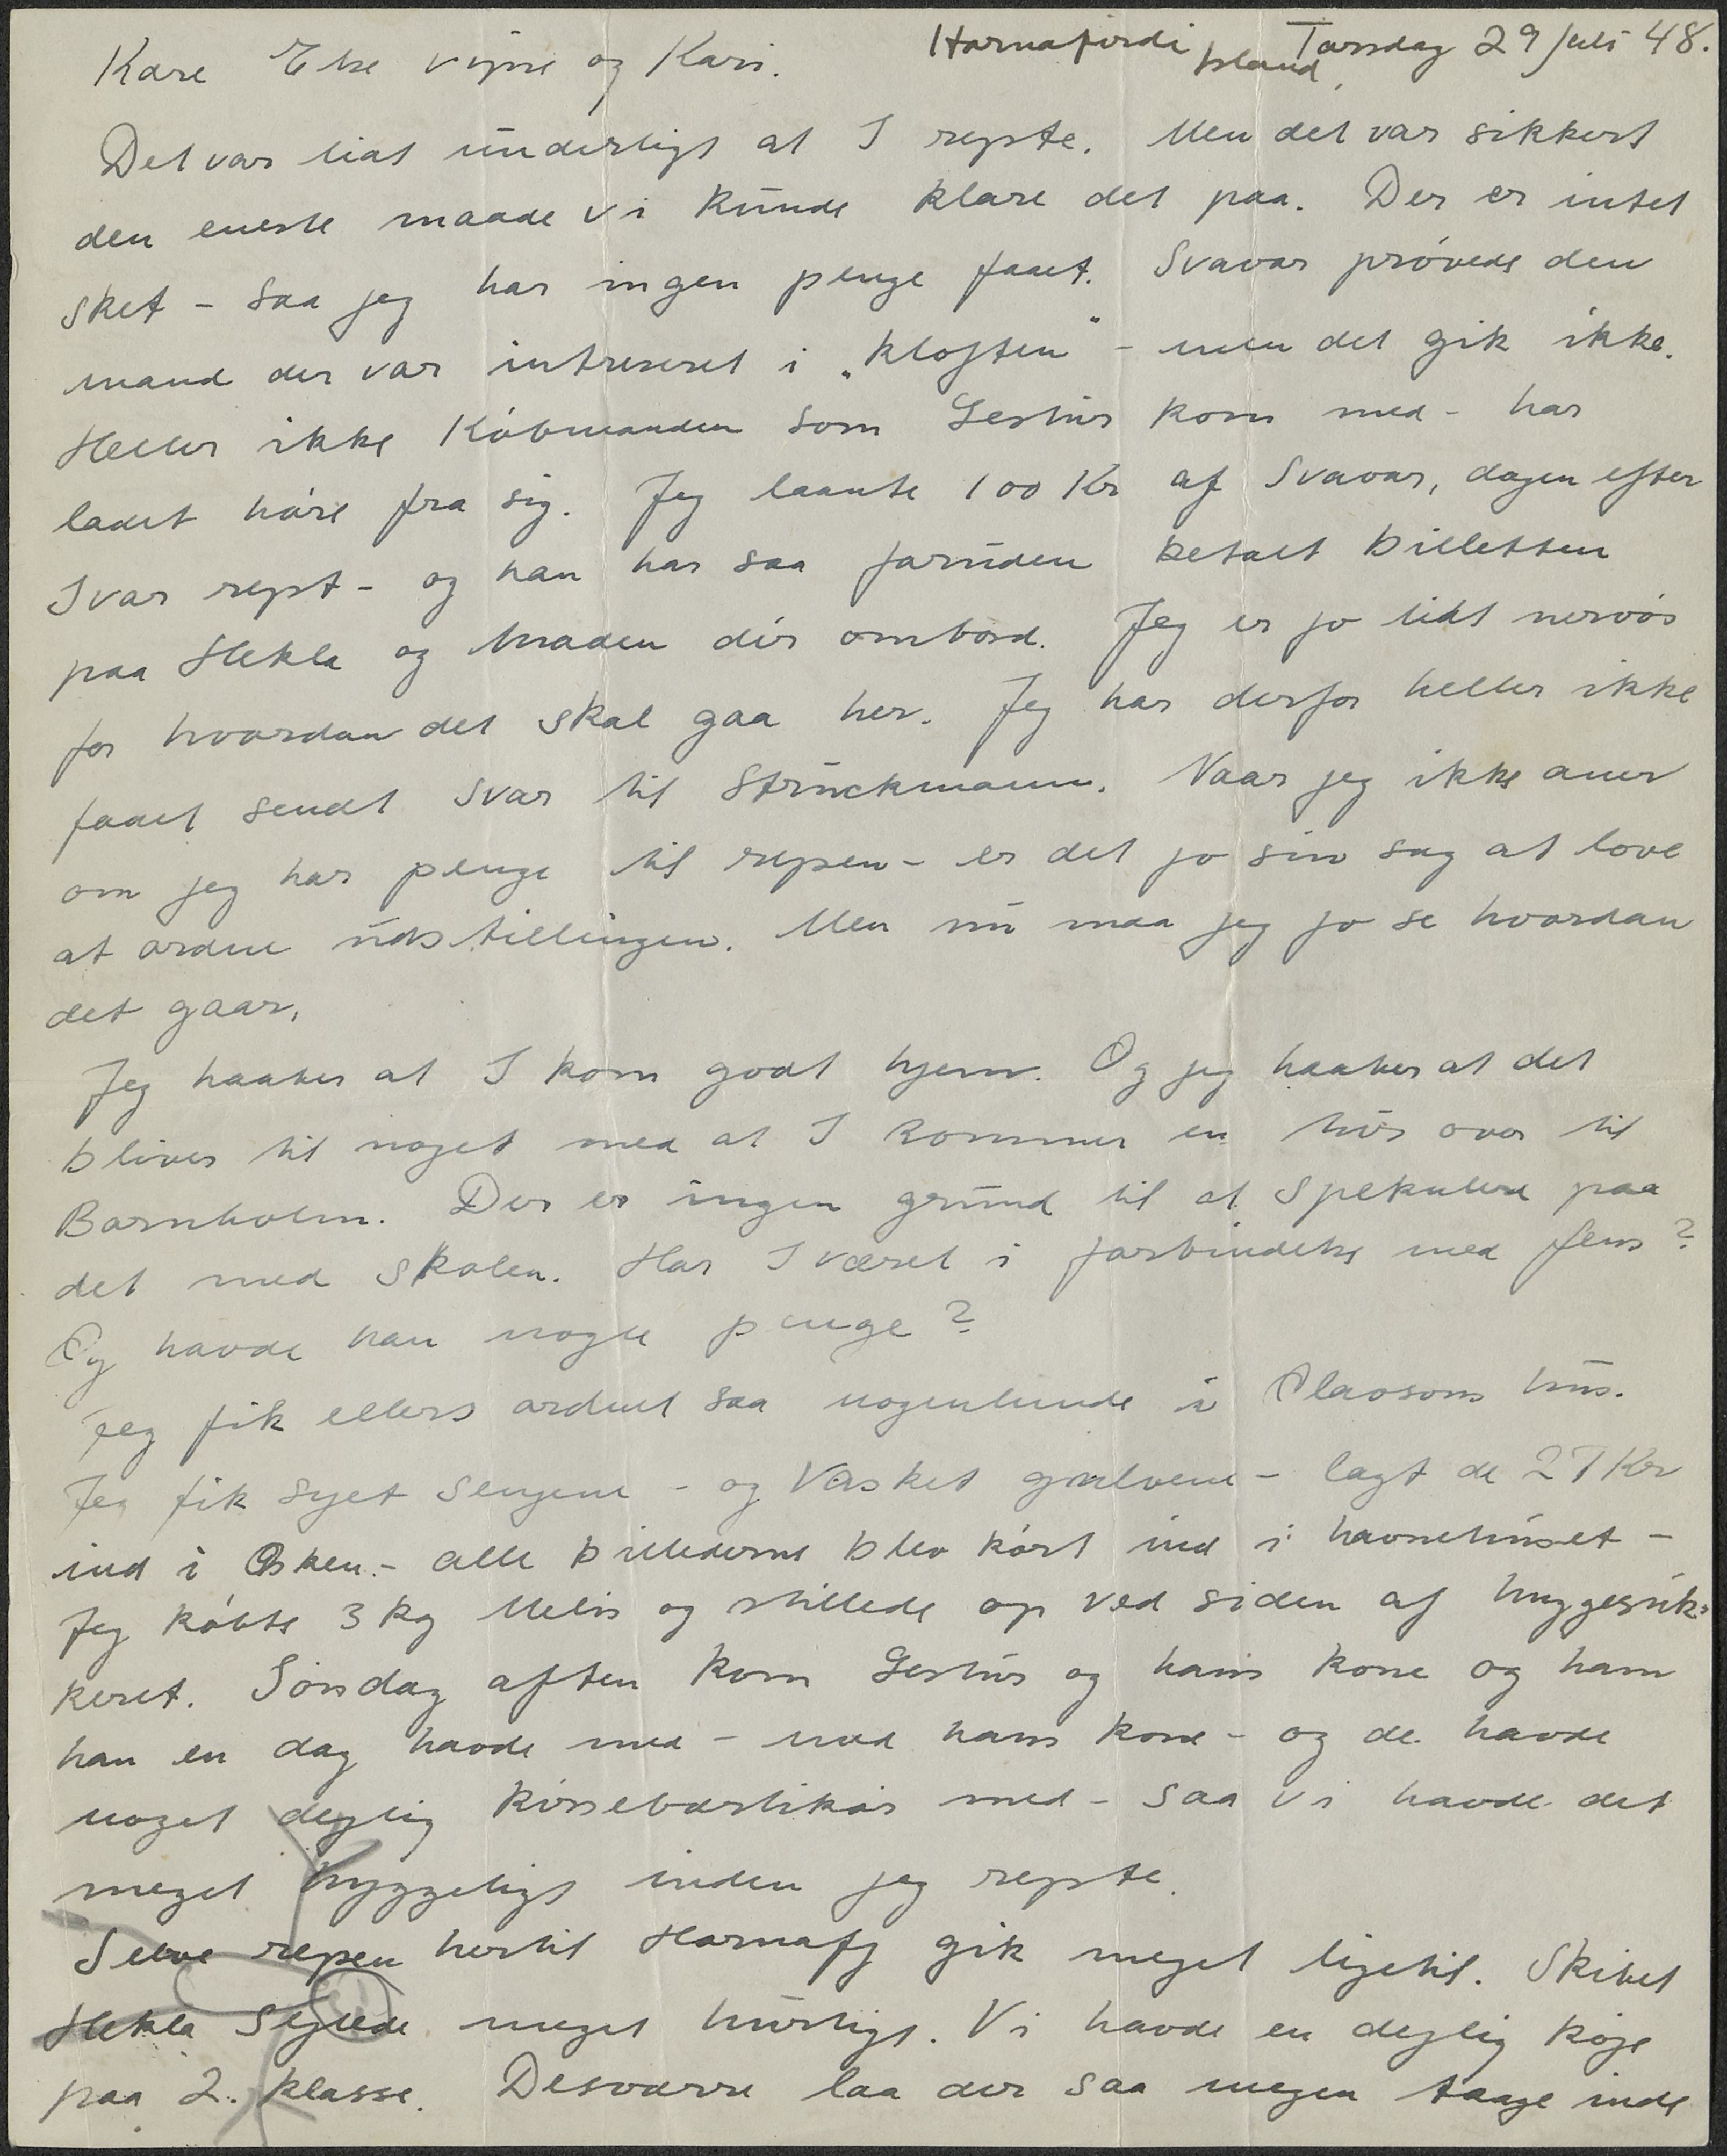 Hornafirdi Island, Torsdag 29 Juli 48.
Kære Else Vipse og Kari.
Det var lidt underligt at I rejste. Men det var sikkert
den eneste maade vi kunde klare det paa. Der er intet
sket - saa jeg har ingen penge faaet. Svavar prøvede den
mand der var intreseret i „Kløften" - men det gik ikke.
Heller ikke Købmanden som Gestur kom med - har
ladet høre fra sig. Jeg laante 100 Kr af Svavar, dagen efter
I var rejst - og han har saa foruden betalt billetten
paa Hekla og Maden dér ombord. Jeg er jo lidt nervøs
for hvordan det skal gaa her. Jeg har derfor heller ikke
faaet sendt svar til Struckmann. Naar jeg ikke aner
om jeg har penge til rejsen - er det jo sin sag at love
at ordne udstillingen. Men nu maa jeg jo se hvordan
det gaar.
Jeg haaber at I kom godt hjem. Og jeg haaber at det
bliver til noget med at I kommer en tur over til
Bornholm. Der er ingen grund til at spekulere paa
det med skolen. Har I været i forbindelse med Jens?
Og havde han nogle penge?
Jeg fik ellers ordnet saa nogenlunde i Olavsons hus.
Jeg fik syet sengene - og Vasket gulvene - lagt de 27 Kr
ind i Æsken. - alle billederne blev kørt ind i havnehuset -
Jeg købte 3 kg Melis og stillede op ved siden af huggesuk-
keret. Søndag aften kom Gestur og hans kone og ham
han en dag havde med - med hans kone - og de havde
noget dejlig Kirsebærlikør med - saa vi havde det
meget hyggeligt inden jeg rejste.
Selve rejsen hertil Hornafj gik meget ligetil. Skibet
Hekla Sejlede meget hurtigt. Vi havde en dejlig køje
paa 2. klasse. Desværre laa der saa megen taage inde